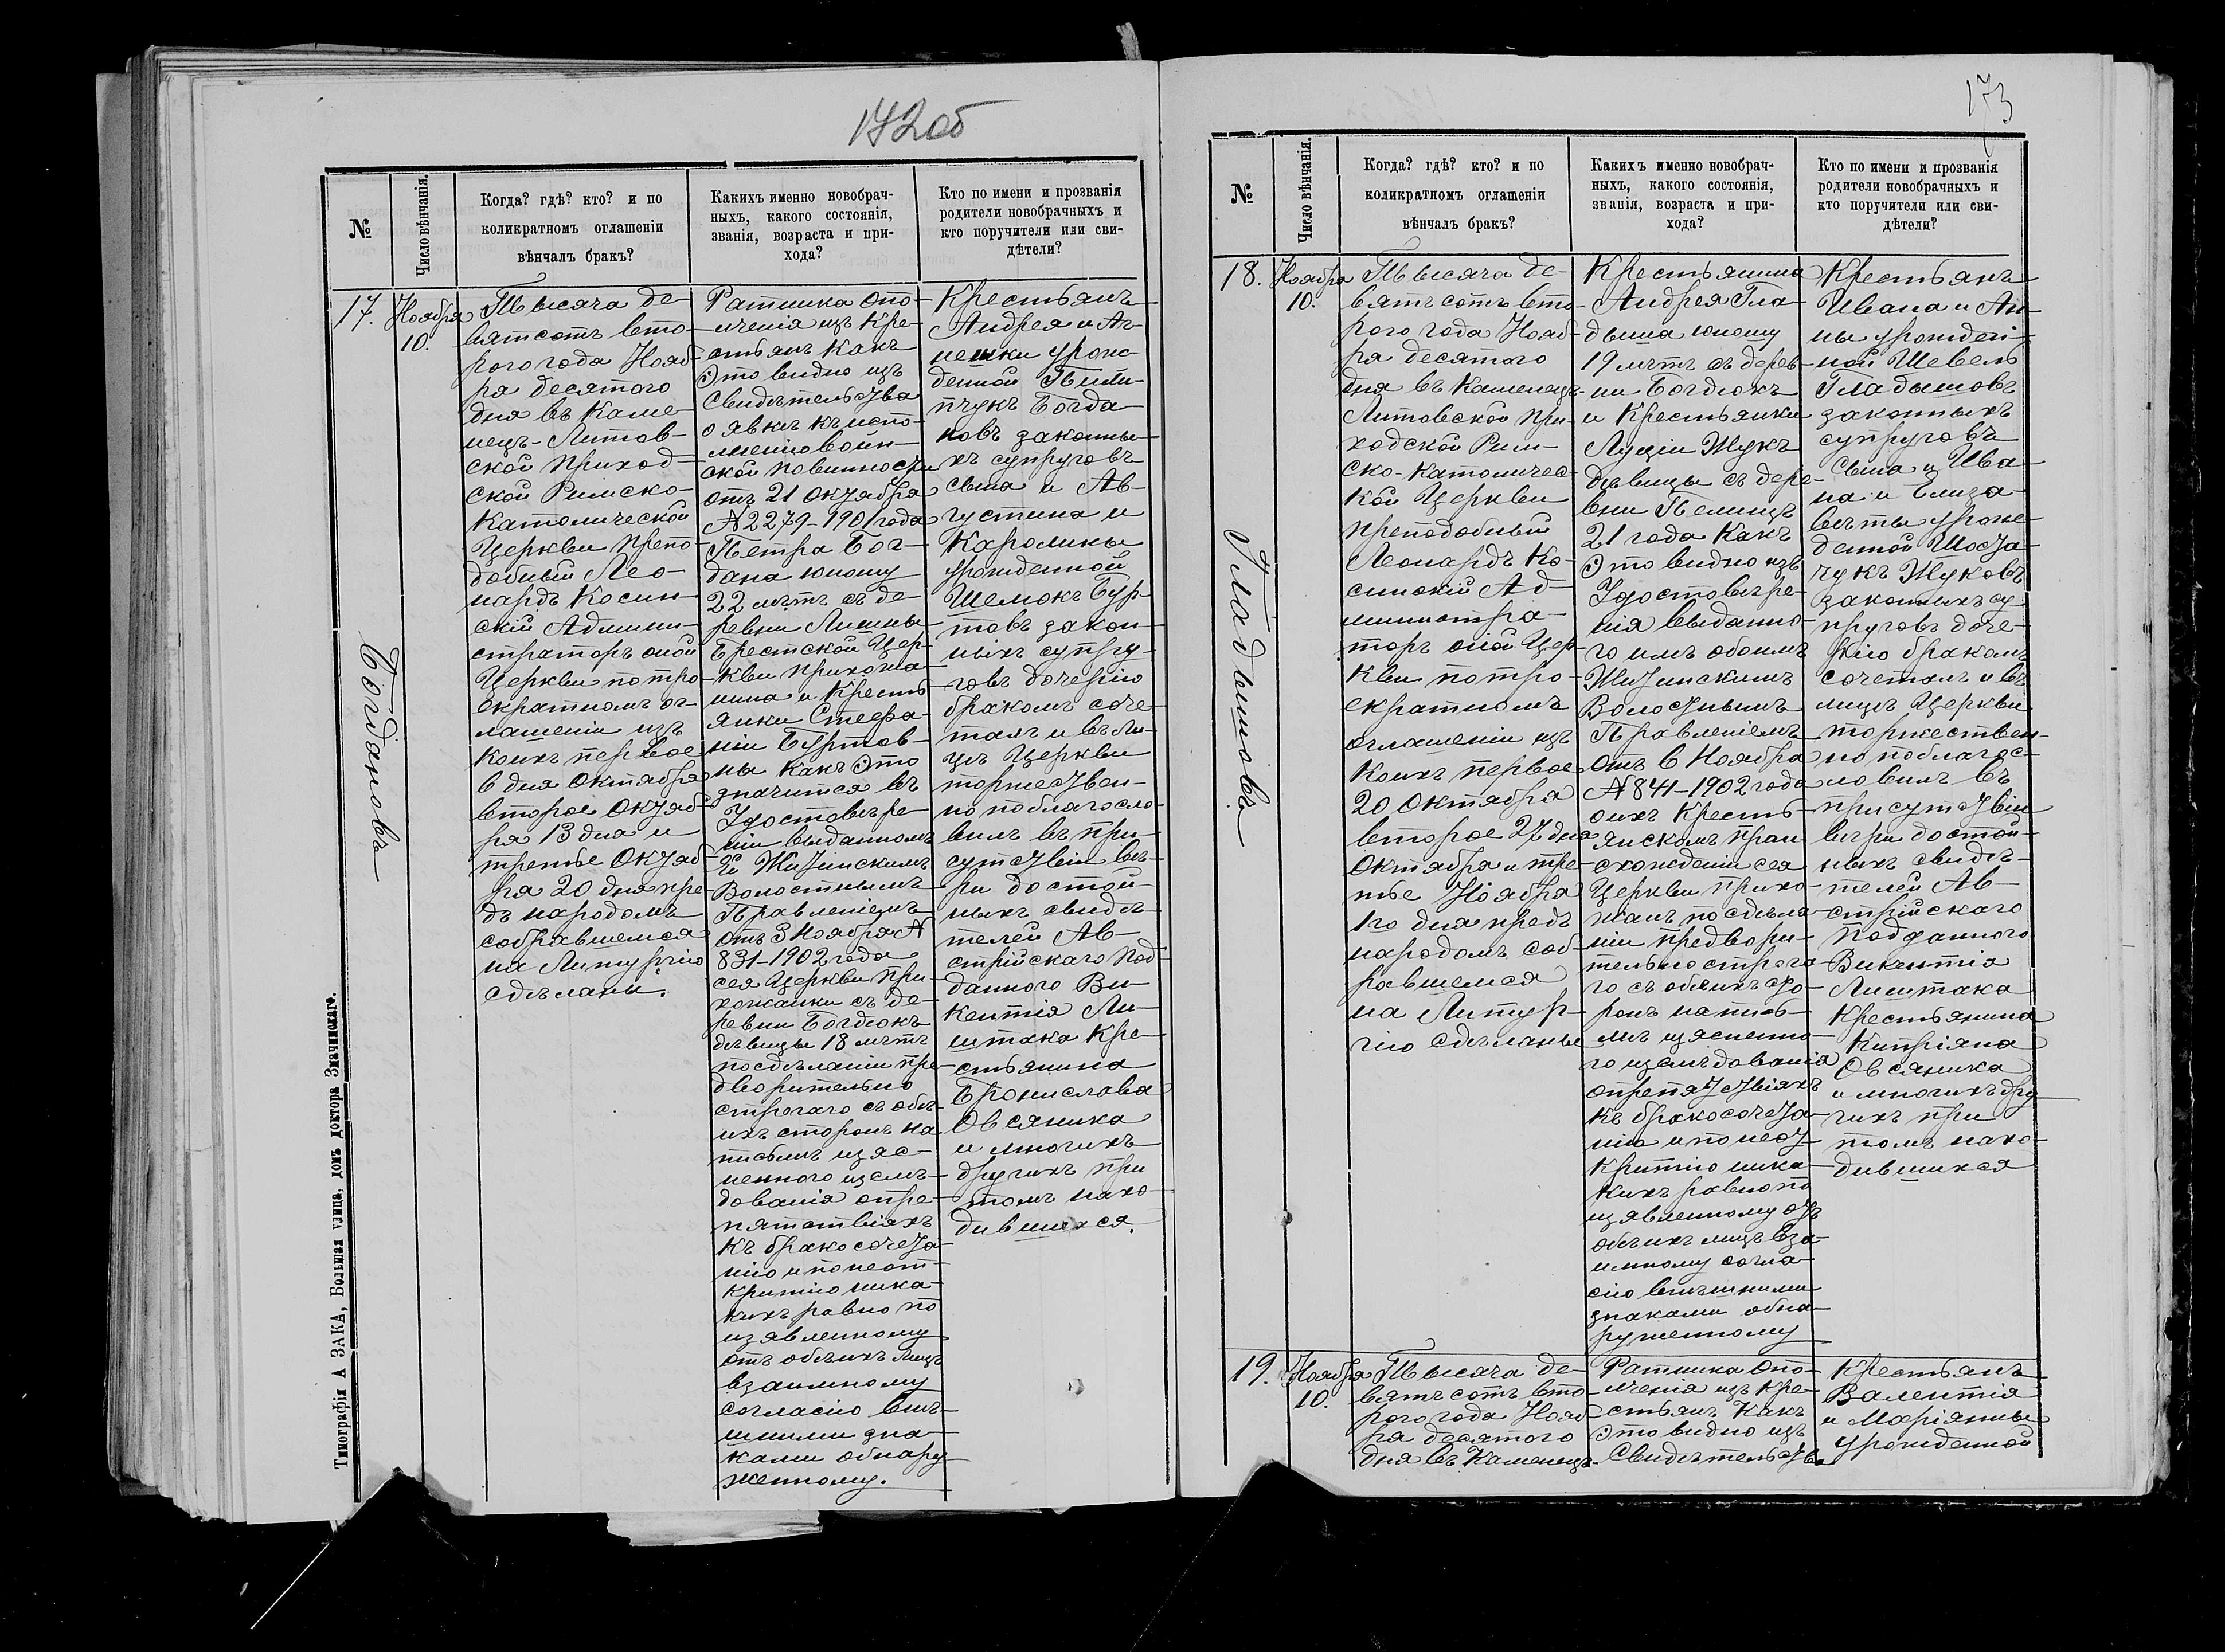 172об
№
Число вѣнчанія.
Когда? гдѣ? кто? и по
коликратномъ оглашеніи
вѣнчалъ бракъ?
Какихъ именно новобрач-
ныхъ, какого состоянія,
званія, возраста и при-
хода?
Кто по имени и прозванія
родители новобрачныхъ и
кто поручители или сви-
дѣтели?
17.
Ноября
10.
Богдановъ
Тысяча де-
вятсотъ вто-
рого года Нояб-
ря десятого
дня въ Каме-
нецъ-Литов-
ской приход-
ской Римско-
Католической
Церкви препо-
добный Лео-
нардъ Косин-
скій Админи-
страторъ оной
Церкви по тро-
екратномъ ог-
лашеніи изъ
коихъ первое
6 дня Октября
второе Октяб-
ря 13 дня и
третье Октяб-
ря 20 дня пре-
дъ народомъ
собравшемся
на Литургію
сдѣланы.
Ратника опо-
лченія изъ Кре-
стьянъ какъ
это видно изъ
свидѣтельства
о явкѣ къ испо-
лненію воин-
ской повинности
отъ 21 Октября
№ 2279-1901 года
Петра Бог-
дана юношу
22 лѣтъ съ де-
ревни
Брестской Цер-
кви прихожа-
нина и Кресть-
янки Стефа-
ніи Буртов-
ны какъ это
значится въ
Удостовѣре-
ніи выданномъ
ей Житинскимъ
Волостнымъ
Правленіемъ
отъ 3 Ноября №
831-1902 года
сея Церкви при-
хожанки съ де-
ревни Богдюкъ
дѣвицы 18 лѣтъ
по сдѣланіи пре-
дворительно
строгаго съ обѣ-
ихъ сторонъ на
письмѣ изяс-
неннаго изслѣ-
дованія о пре-
пятствіяхъ
къ бракосочета-
нію и по неот-
крытію ника-
кихъ равно по
изявленному
отъ обѣихъ лицъ
взаимному
согласію внѣ-
шними зна-
ками обнару-
женному.
Крестьянъ
Андрея и Аг-
нешки урож-
денной
Богда-
новъ законны-
хъ супруговъ
сына и Ав-
густина и
Каролины
урожденной
Шелюкъ Бур-
товъ закон-
ныхъ супру-
говъ дочерію
бракомъ соче-
талъ и въ ли-
цѣ Церкви
торжествен-
но поблагосло-
вилъ въ при-
сутствіи вѣ-
ри достой-
ныхъ свидѣ-
телей Ав-
стрійскаго под-
данного Ви-
кентія Ли-
штака Кре-
стьянина
Бронислава
Овсяника
и многихъ
другихъ при
томъ нахо-
дившихся.
Типографія А ЗАКА, Большая улица, домъ доктора Значинскаго.
173
№
Число вѣнчанія.
Когда? гдѣ? кто? и по
коликратномъ оглашеніи
вѣнчалъ бракъ?
Какихъ именно новобрач-
ныхъ, какого состоянія,
званія, возраста и при-
хода?
Кто по имени и прозванія
родители новобрачныхъ и
кто поручители или сви-
дѣтели?
18.
Ноября
10.
Гладышовъ
Тысяча де-
вятьсотъ вто-
рого года Нояб-
ря десятого
дня въ Каменецъ-
Литовской при-
ходской Рим-
ско-Католичес-
кой Церкви
преподобный
Леонардъ Ко-
синскій Ад-
министра-
торъ оной Цер-
кви по тро-
екратномъ
оглашеніи изъ
коихъ первое
20 Октября
второе 27 дня
Октября и тре-
тье Ноября
1го дня предъ
народомъ соб-
равшемся
на Литур-
гію сдѣланы
Крестьянина
Андрея Гла-
дыша юношу
19 лѣтъ съ дерев-
ни Богдюкъ
и Крестьянки
Луціи Жукъ
дѣвицы съ дере-
вни Пелищъ
21 года какъ
это видно изъ
Удостовѣре-
нія выданно-
го имъ обоимъ
Житинскимъ
Волостнымъ
Правленіемъ
отъ 6 Ноября
№ 841-1902 года
оихъ Кресть-
янскомъ прои-
схожденіи сея
Церкви прихо-
жанъ по сдѣла-
ніи предвори-
тельно строга-
го съ обѣихъ сто-
ронъ на пись-
мѣ изясненно-
го изслѣдованія
о препятствіяхъ
къ бракосочета-
нію и по неот-
крытію ника-
кихъ равно по
изявленному отъ
обѣихъ лицъ вза-
имному согла-
сію внѣшними
знаками обна-
руженному
Крестьянъ
Ивана и Ан-
ны урожден-
ной Шевель
Гладышовъ
законныхъ
супруговъ
сына и Ива-
на и Елиза-
веты урож-
денной Шоста-
чукъ Жуковъ
законныхъ су-
пруговъ доче-
рію бракомъ
сочеталъ и въ
лицѣ Церкви
торжествен-
но поблагос-
ловилъ въ
присутствіи
вѣри достой-
ныхъ свидѣ-
телей Ав-
стрійскаго
подданного
Викентія
Лиштака
Крестьянина
Кипріяна
Овсяника
и многихъ дру-
гихъ при
томъ нахо-
дившихся
19.
Ноября
10.
Тысяча де-
вятьсотъ вто-
рого года Нояб-
ря десятого
дня въ Каменецъ-
Ратника опо-
лченія изъ Кре-
стьянъ какъ
это видно изъ
Свидѣтельств
Крестьянъ
Валентія
и Маріянны
урожденной